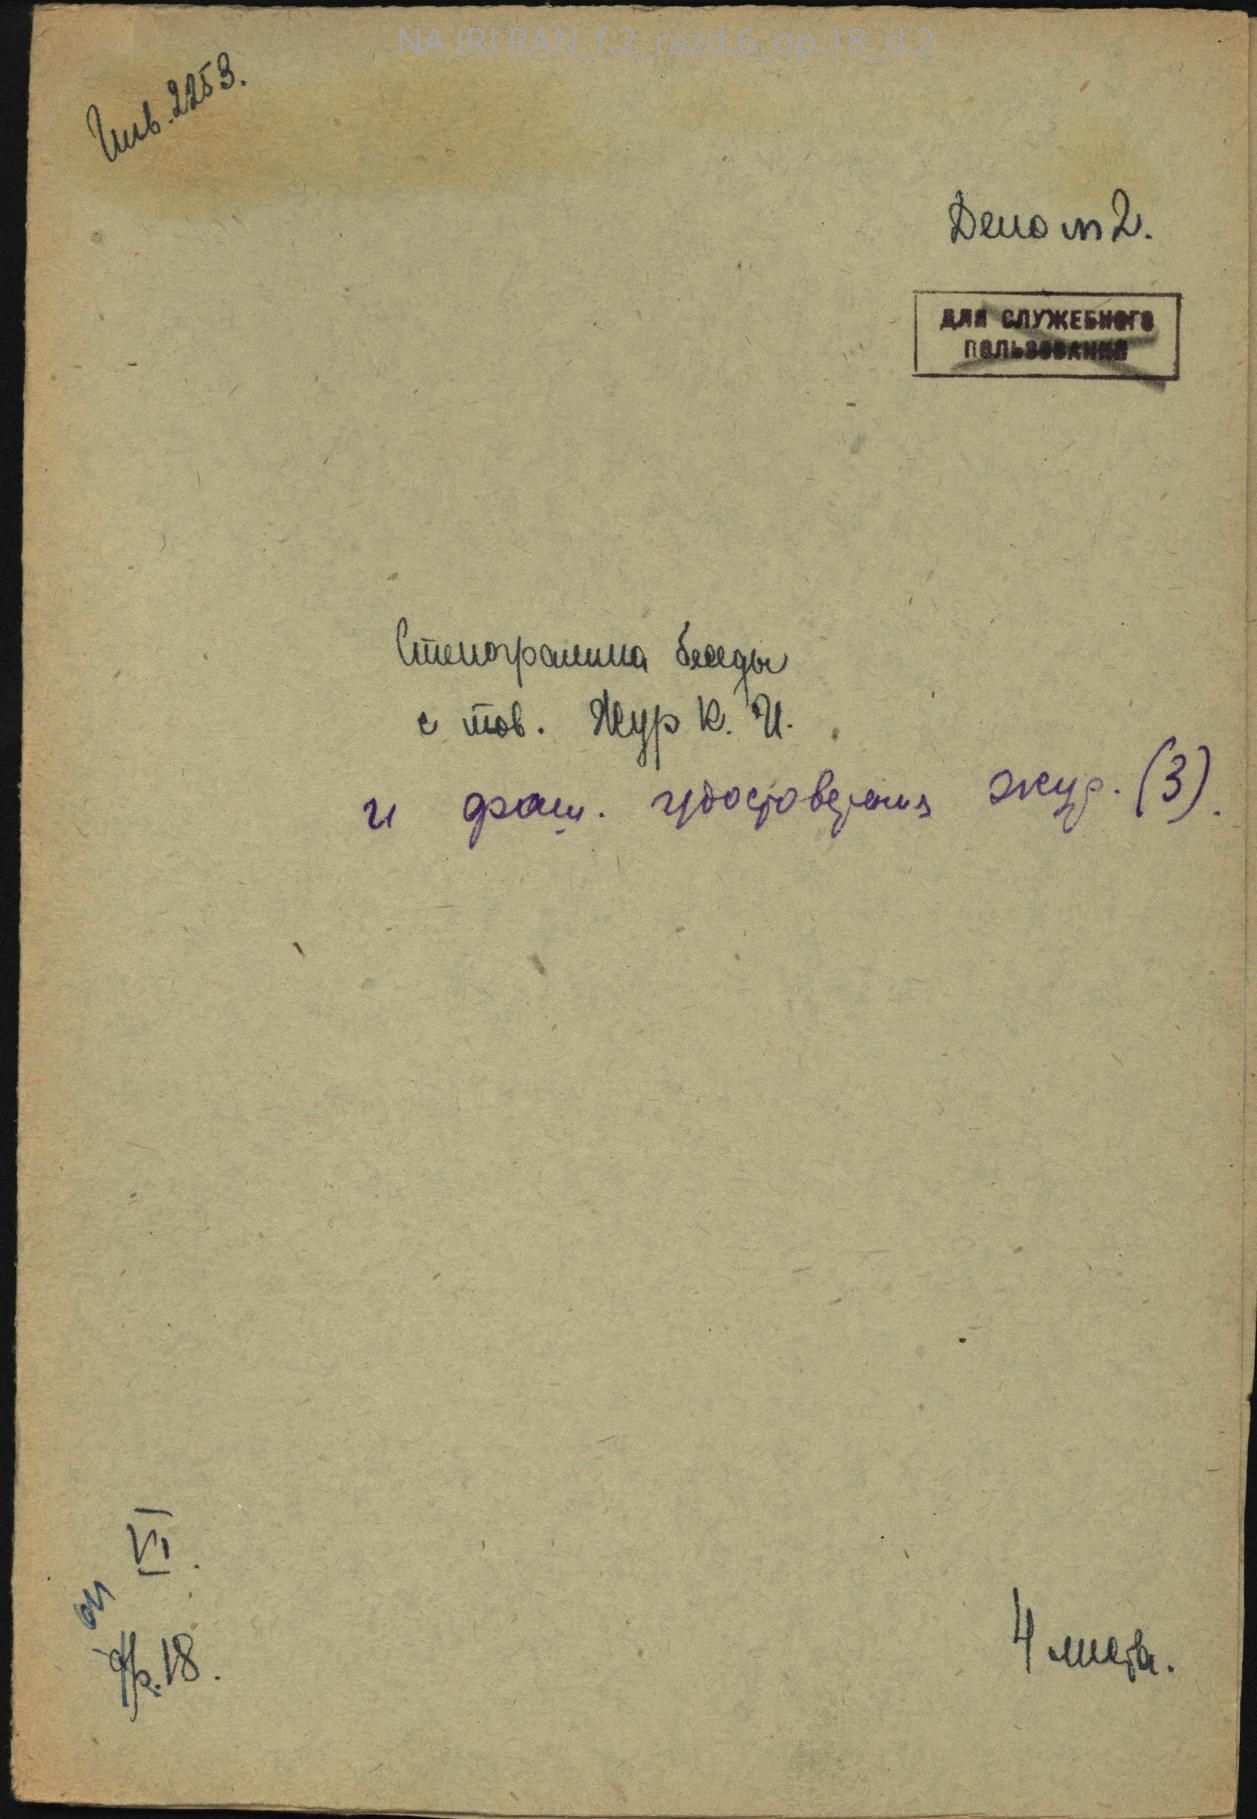 NA IRI RAN_f.2_razd.6_op.18_d.2
Инв. 2253.
Дело № 2.
ДЛЯ СЛУЖЕБНОГО
ПОЛЬЗОВАНИЯ
Стенограмма беседы
с тов. Жур К. И.
и фаш. удостоверения жур. (3).
VI.
оп
18.
4 листа.